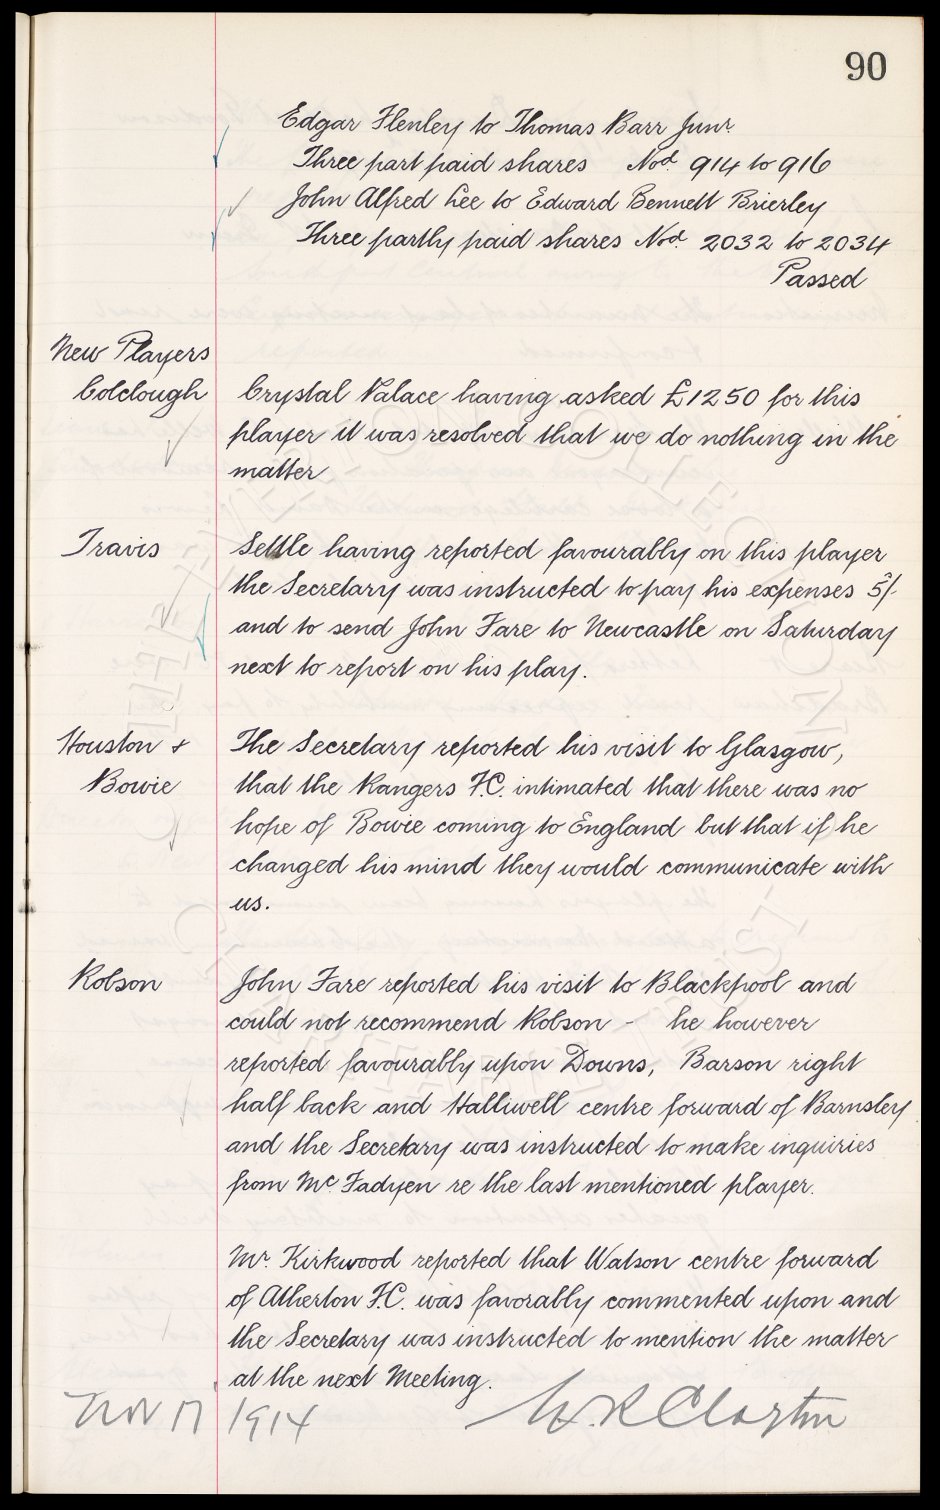 90
Edgar Henley to Thomas Barr Junr.
Three part paid shares Nod. 914 to 916
John Alfred Lee to Edward Bennett Brierley
Three partly paid shares Nod. 2032 to 2034
Passed
New Players
Colclough Crystal Palace having asked £1250 for this
player it was resolved that we do nothing in the
matter
Travis Settle having reported favourably on this player
the Secretary was instructed to pay his expenses 5/-
and to send John Fare to Newcastle on Saturday
next to report on his play.
Houston & The Secretary reported his visit to Glasgow,
Bowie that the Rangers F.C. intimated that there was no
hope of Bowie coming to England but that if he
changed his mind they would communicate with
us.
Robson John Fare reported his visit to Blackpool and
could not recommend Robson - he however
reported favourably upon Downs, Barson right
half back and Halliwell centre forward of Barnsley
and the Secretary was instructed to make inquiries
from Mc. Fadyen re the last mentioned player.
Mr. Kirkwood reported that Watson centre forward
of Atherton F.C. was favorably commented upon and
the Secretary was instructed to mention the matter
at the next Meeting.
Nov 17 1914 W R Clayton